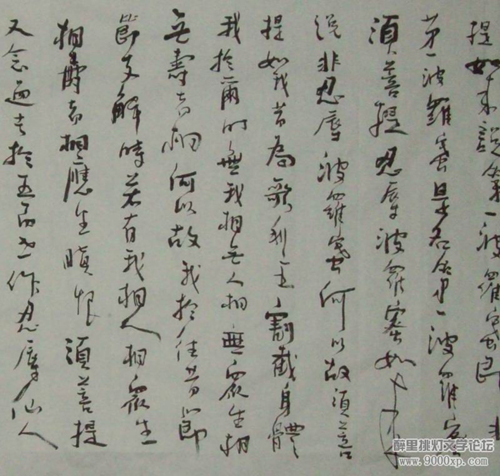 提如来說第一波羅蜜即非
第一波羅蜜是名第一波羅蜜
須菩提忍辱波羅蜜如来
說非忍辱波羅蜜何以故須菩
提如我昔為歌利王割截身體
我於爾時無我相无人相無眾生相
无壽者相何以故我於往昔節
節支解時若有我相人相眾生
相壽者相應生瞋恨須菩提
又念過去於五百世作忍辱仙人
醉里挑灯文学论坛
www.9000xp.com